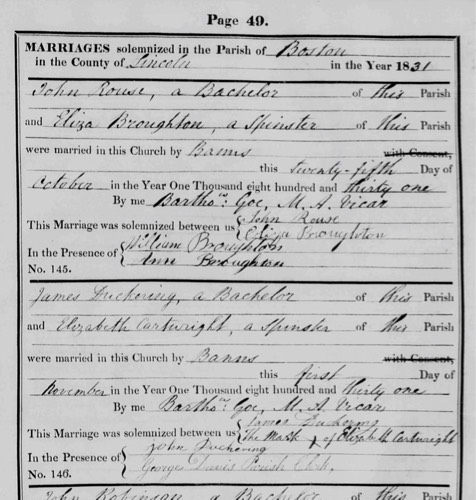 Page 49.
MARRIAGES solemnized in the Parish of Boston
in the County of Lincoln in the Year 1831
John Rouse, a Bachelor of this Parish
and Eliza Broughton, a Spinster of this Parish
were married in this Church by Banns with Consent,
this twenty-fifth Day of
October in the Year One Thousand eight hundred and thirty one
By me Barthow: Goe, M. A. Vicar
This Marriage was solemnized between us { John Rouse
Eliza Broughton
In the Presence of { William Broughton
Ann Broughton
No. 145.
James Duchering, a Bachelor of this Parish
and Elizabeth Cartwright, a Spinster of this Parish
were married in this Church by Banns with Consent,
this first Day of
November in the Year One Thousand eight hundred and thirty one
By me Bartho: Goe, M. A. Vicar
This Marriage was solemnized between us { James
The Mark of Elizabeth Cartwright
In the Presence of { John Duchering
George Davis Parish Clerk.
No. 146.
John Robinson a Bachelor of this Parish